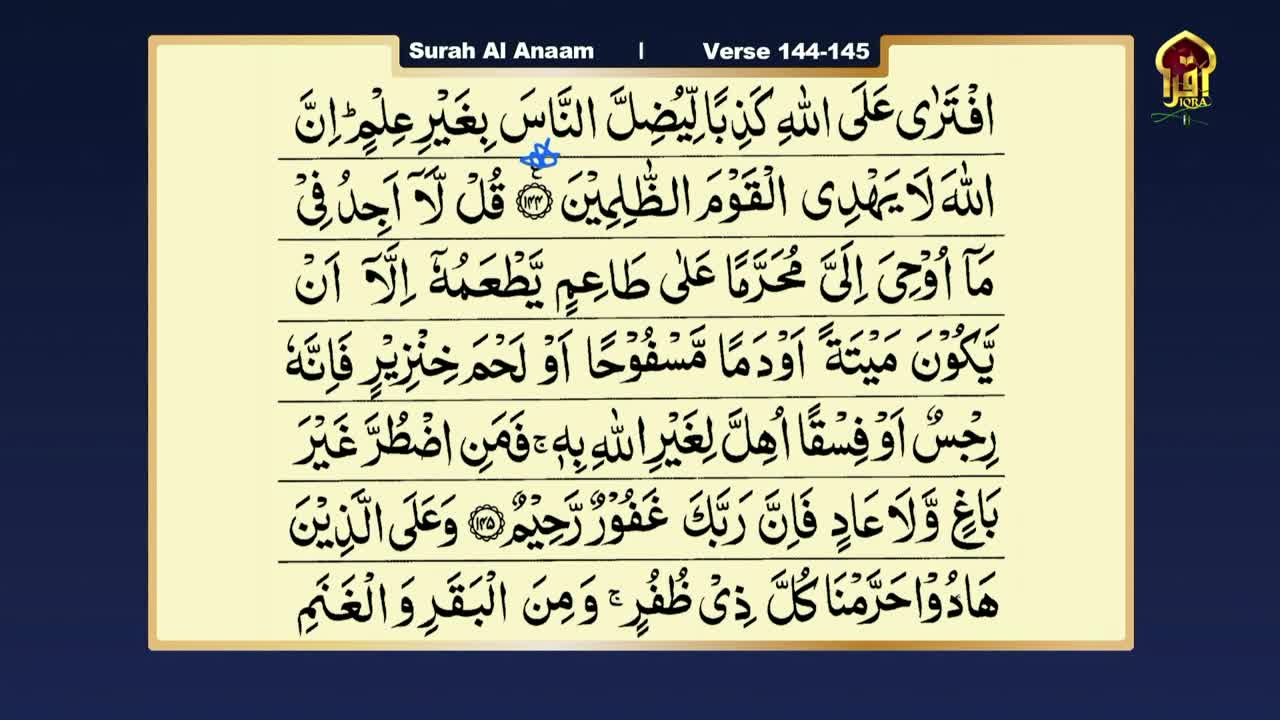 Surah Al Anaam | Verse 144-145
اقرأ
IQRA
افْتَرٰى عَلَى اللّٰهِ كَذِبًا لِّيُضِلَّ النَّاسَ بِغَيْرِ عِلْمٍ ؕ اِنَّ
اللّٰهَ لَا يَهْدِى الْقَوْمَ الظّٰلِمِيْنَ ﴿۱۴۴﴾ قُلْ لَّاۤ اَجِدُ فِىْ
مَاۤ اُوْحِىَ اِلَىَّ مُحَرَّمًا عَلٰى طَاعِمٍ يَّطْعَمُهٗۤ اِلَّاۤ اَنْ
يَّكُوْنَ مَيْتَةً اَوْ دَمًا مَّسْفُوْحًا اَوْ لَحْمَ خِنْزِيْرٍ فَاِنَّهٗ
رِجْسٌ اَوْ فِسْقًا اُهِلَّ لِغَيْرِ اللّٰهِ بِهٖ ۚ فَمَنِ اضْطُرَّ غَيْرَ
بَاغٍ وَّلَا عَادٍ فَاِنَّ رَبَّكَ غَفُوْرٌ رَّحِيْمٌ ﴿۱۴۵﴾ وَعَلَى الَّذِيْنَ
هَادُوْا حَرَّمْنَا كُلَّ ذِىْ ظُفُرٍ ۚ وَمِنَ الْبَقَرِ وَالْغَنَمِ